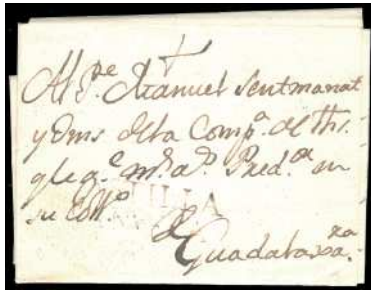 Al P.e Manuel Sentmanat
y Oms de la Comp.a de Ihs.
q.e g.e m.s a.s Pred.or en
su Coll.o
de
Guadalaxa.ra